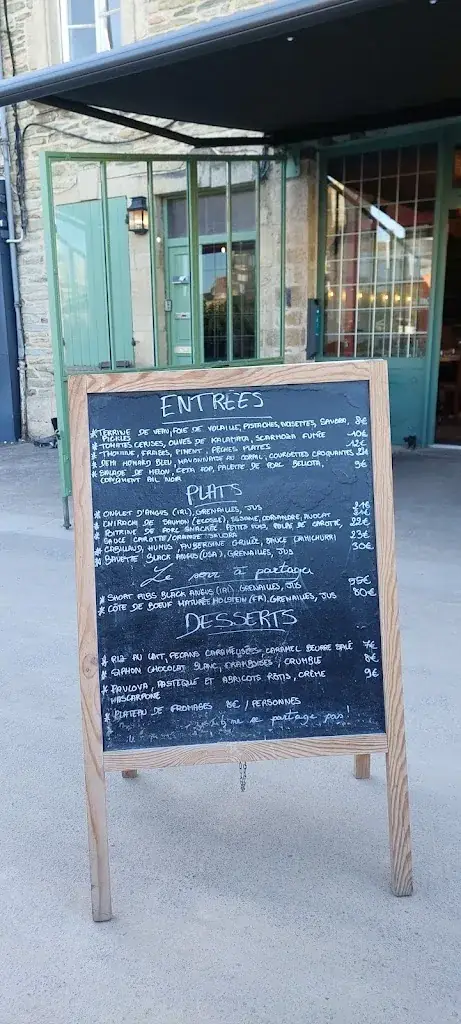 ENTRÉES
* TERRINE DE VEAU, FOIE DE VOLAILLE, PISTACHES, NOISETTES, 8€
PICKLES
* TOMATES CERISES, OLIVES DE KALAMATA, SCARMORZA FUMÉE 10€
* THON, FRAISES, PIMENT, PÊCHES PLATES
* DEMI HOMARD BLEU, MAYONNAISE AU CORAIL, COURGETTES CROQUANTES
* SALADE DE MELON, FETA AOP, PALETTE DE PORC BELLOTA, 9€
CONDIMENT AIL NOIR
PLATS
* ONGLET D'ANGUS (IRL), GRENAILLES, JUS
* CHIRACHI DE SAUMON (ECOSSE), SÉSAME, CORIANDRE, AVOCAT
* POITRINE DE PORC SNACKÉE, PETITS POIS, DE CAROTTE, 22€
SAUCE CAROTTE/ORANGE SANORA
* CABILLAUD, HUMUS, AUBERGINE GRILLÉE, SAUCE CHIMICHURRI 23€
* BAVETTE BLACK ANGUS (USA), GRENAILLES, JUS 30€
Le soir à partager
* SHORT RIBS BLACK ANGUS (IRL) GRENAILLES, JUS
* CÔTE DE BOEUF MATURÉE HOLSTEIN (FR), GRENAILLES, JUS 80€
DESSERTS
* RIZ AU LAIT, PECANS CARAMELISÉES, CARAMEL BEURRE SALÉ 7€
* SIPHON CHOCOLAT BLANC, FRAMBOISES / CRUMBLE 8€
* PAVLOVA, PASTEQUE ET ABRICOTS RÔTIS, CRÈME 9€
MASCARPONE
* PLATEAU DE FROMAGES 8€ / PERSONNES
ne se partage pas !